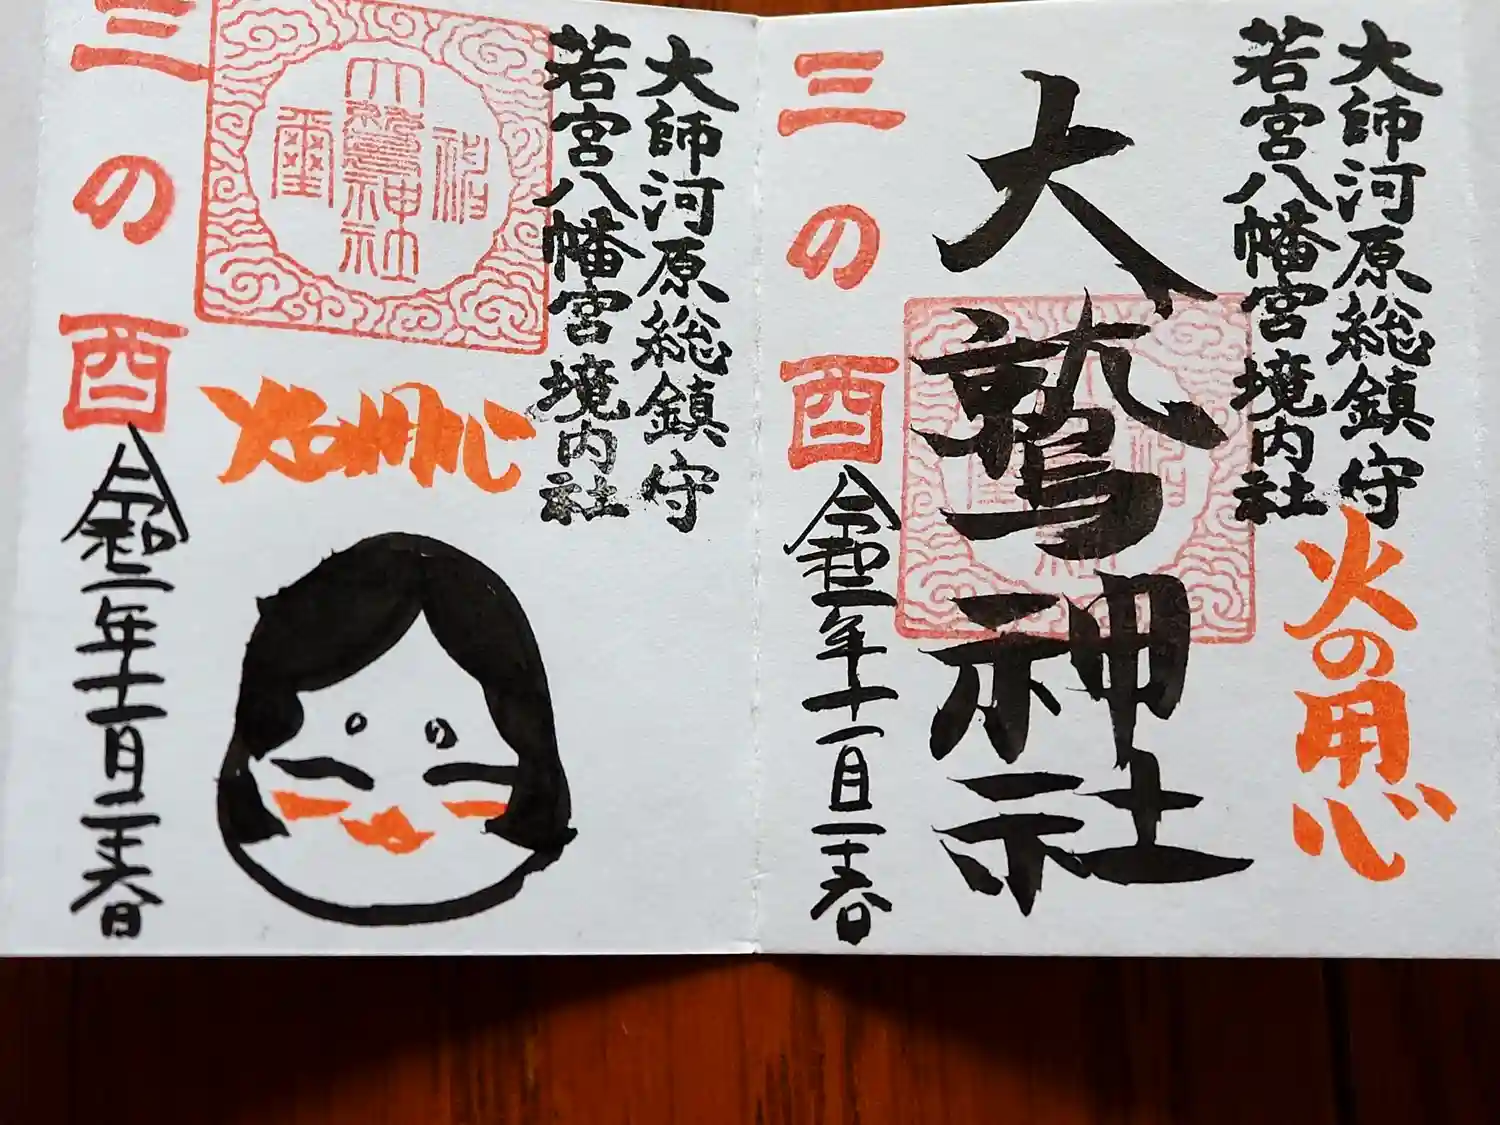 大師河原総鎮守
若宮八幡宮境内社
火の用心
大鷲神社
三の酉
令和二年十一月二十六日
大師河原総鎮守
若宮八幡宮境内社
大鷲神社
火の用心
三の酉
令和二年十一月二十六日